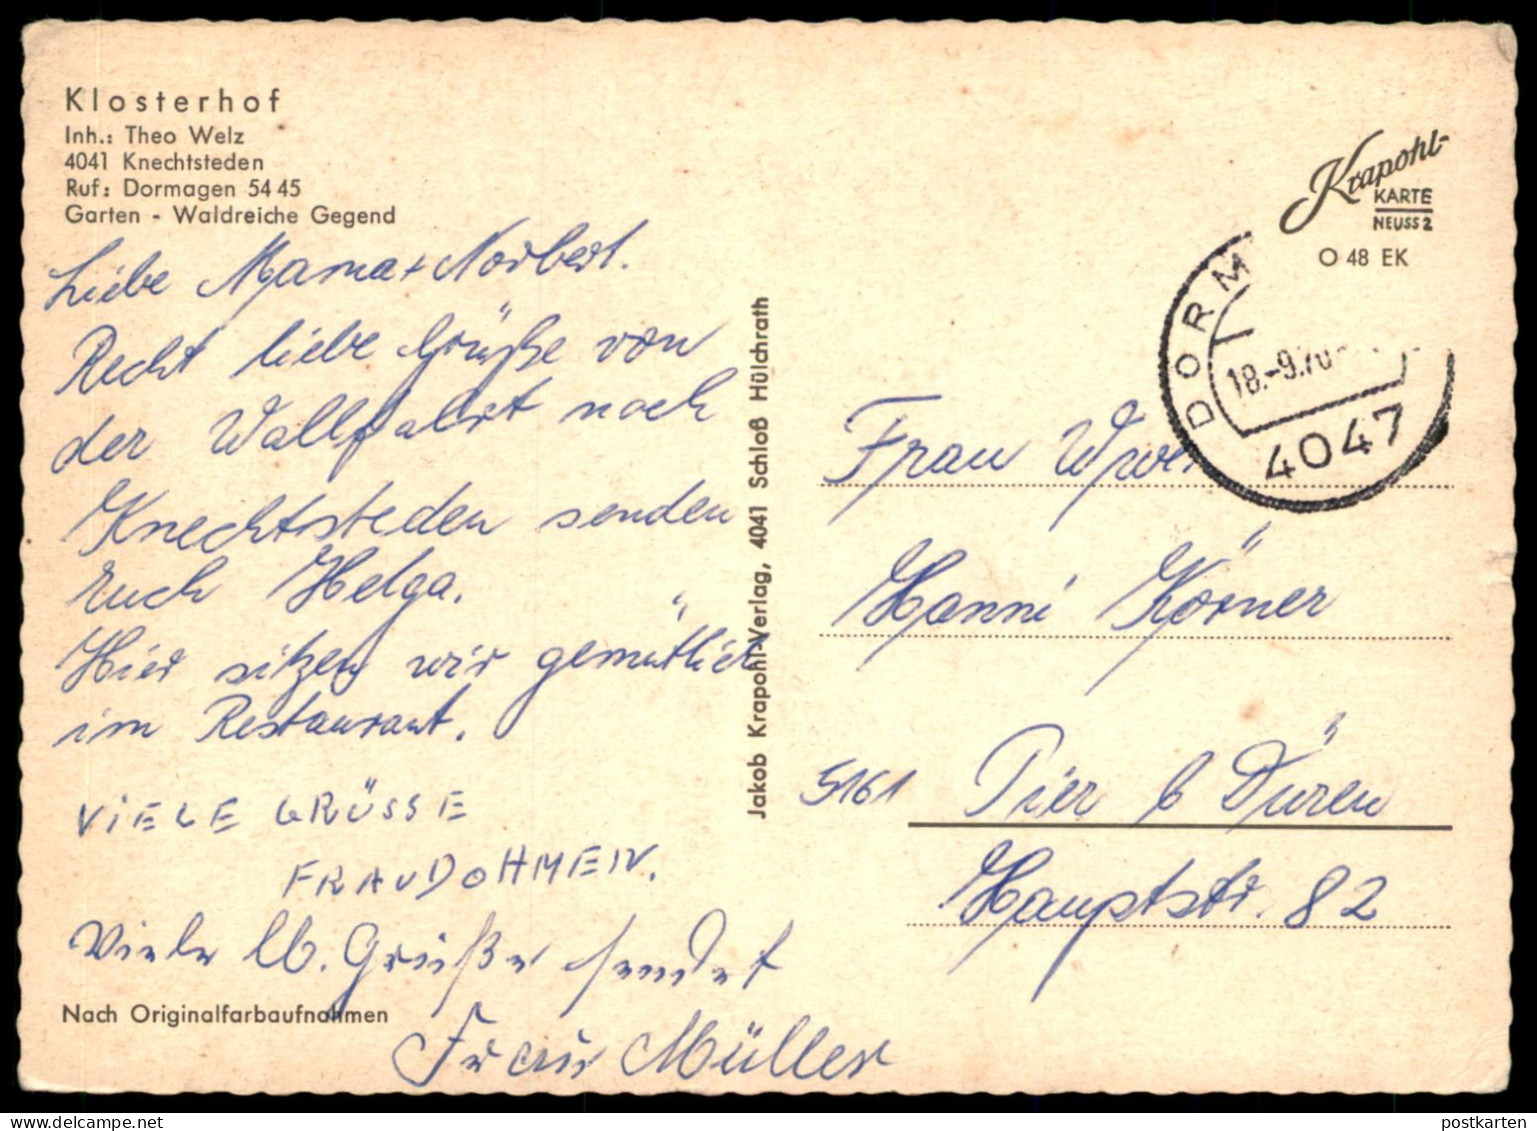 Klosterhof
Inh.: Theo Welz
4041 Knechtsteden
Ruf: Dormagen 54 45
Garten - Waldreiche Gegend
Liebe Mama + Norbert.
Recht liebe Grüße von
der Wallfahrt nach
Knechtsteden senden
Euch Helga.
Hier sitzen wir gemütlich
im Restaurant.
VIELE GRÜSSE
FRAU DOHMEN.
Viele lb. Grüße sendet
Frau Müller
Nach Originalfarbaufnahmen
Jakob Krapohl-Verlag, 4041 Schloß Hülchrath
Krapohl-
KARTE
NEUSS 2
O 48 EK
DORM
18.-9.70
4047
Frau
Hanni Körner
5161 Pier b Düren
Hauptstr. 82
postkarten